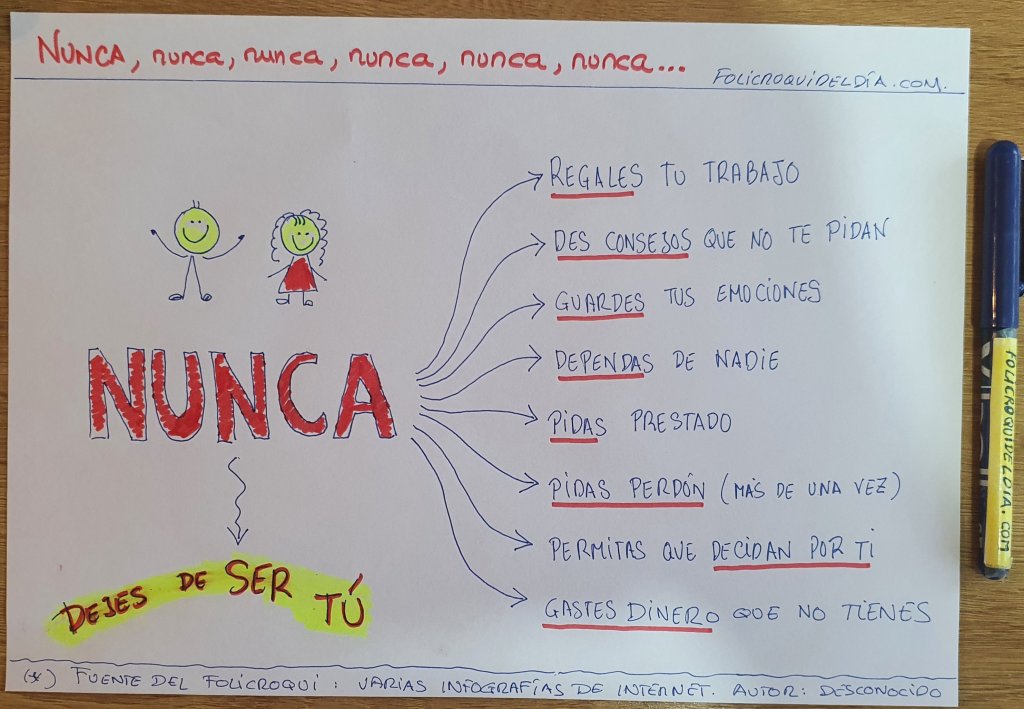 NUNCA, nunca, nunca, nunca, nunca, nunca...
FOLICROQUIDELDÍA.COM.
REGALES TU TRABAJO
DES CONSEJOS QUE NO TE PIDAN
GUARDES TUS EMOCIONES
DEPENDAS DE NADIE
PIDAS PRESTADO
PIDAS PERDÓN (MÁS DE UNA VEZ)
PERMITAS QUE DECIDAN POR TI
GASTES DINERO QUE NO TIENES
NUNCA
DEJES DE SER TÚ
(*) FUENTE DEL FOLICROQUI: VARIAS INFOGRAFÍAS DE INTERNET. AUTOR: DESCONOCIDO
FOLICROQUIDELDIA.COM